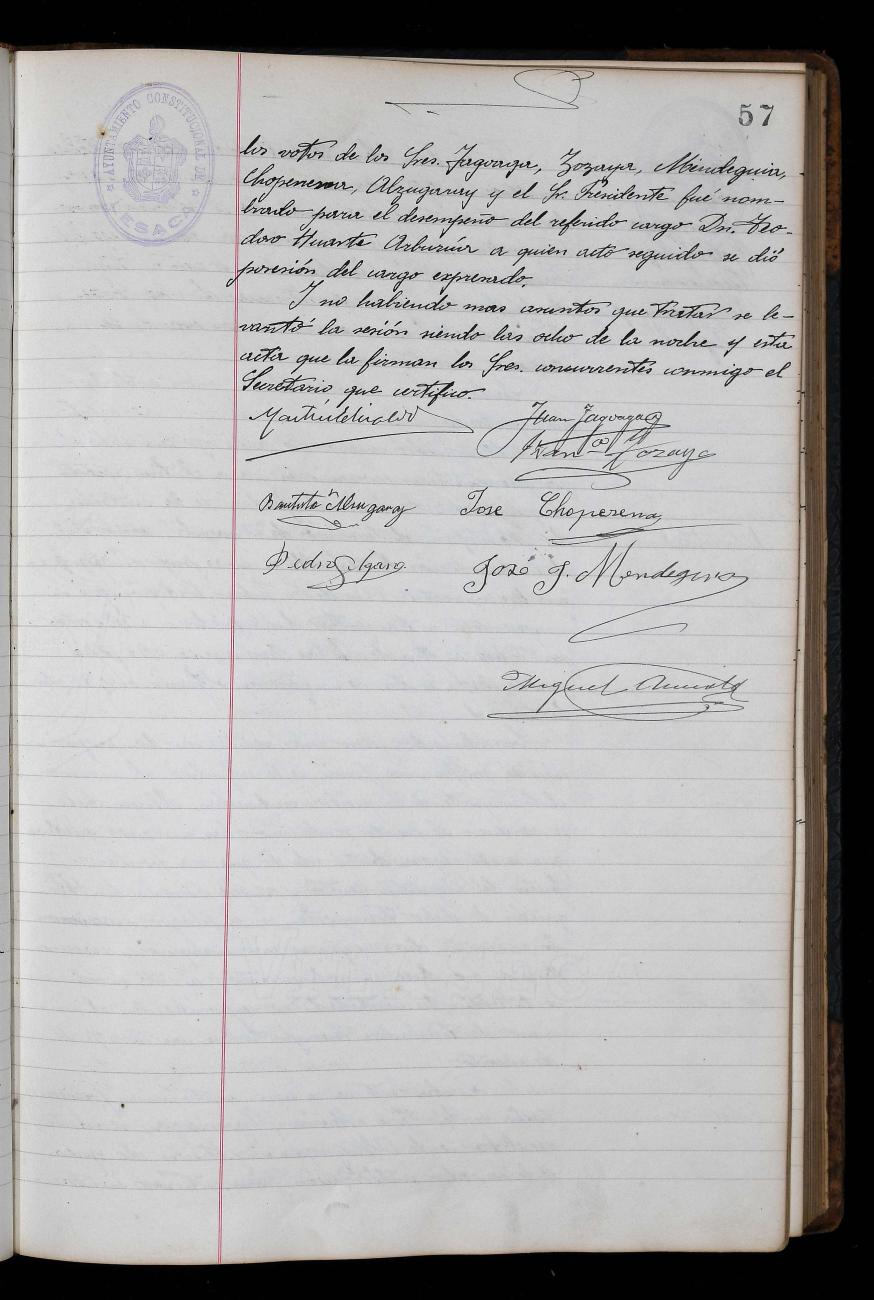 57
AYUNTAMIENTO CONSTITUCIONAL DE
LESACA
los votos de los Sres. Jagoaga, Zozaya, Mendeguia,
Choperena, Alzugaray y el Sr. Presidente fué nom-
brado para el desempeño del referido cargo Dn. Teo-
doro Huarte Arburúa a quien acto seguido se dió
posesión del cargo expresado.
Y no habiendo mas asuntos que tratar se le-
vantó la sesión siendo las ocho de la noche y esta
acta que la firman los Sres. concurrentes conmigo el
Secretario que certifico.
Juan Jagoaga
Franco Zozaya
Bautista Alzugaray
Jose Choperena
Pedro
José J. Mendeguia
Miguel